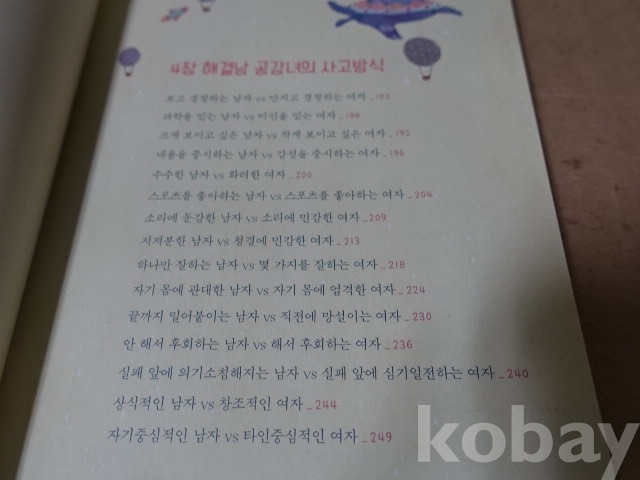 4장 해결남 공감녀의 사고방식
보고 결정하는 남자 vs 만지고 결정하는 여자 _ 183
과학을 믿는 남자 vs 미신을 믿는 여자 _ 188
크게 보이고 싶은 남자 vs 작게 보이고 싶은 여자 _ 192
내용을 중시하는 남자 vs 감성을 중시하는 여자 _ 196
수수한 남자 vs 화려한 여자 _ 200
스포츠를 좋아하는 남자 vs 스포츠를 좋아하는 여자 _ 204
소리에 둔감한 남자 vs 소리에 민감한 여자 _ 209
지저분한 남자 vs 청결에 민감한 여자 _ 213
하나만 잘하는 남자 vs 몇 가지를 잘하는 여자 _ 218
자기 몸에 관대한 남자 vs 자기 몸에 엄격한 여자 _ 224
끝까지 밀어붙이는 남자 vs 직전에 망설이는 여자 _ 230
안 해서 후회하는 남자 vs 해서 후회하는 여자 _ 236
실패 앞에 의기소침해지는 남자 vs 실패 앞에 심기일전하는 여자 _ 240
상식적인 남자 vs 창조적인 여자 _ 244
자기중심적인 남자 vs 타인중심적인 여자 _ 249
kobay